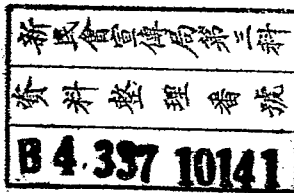 新民會宣傳局第三科
資料整理番號
B 4.337 10141